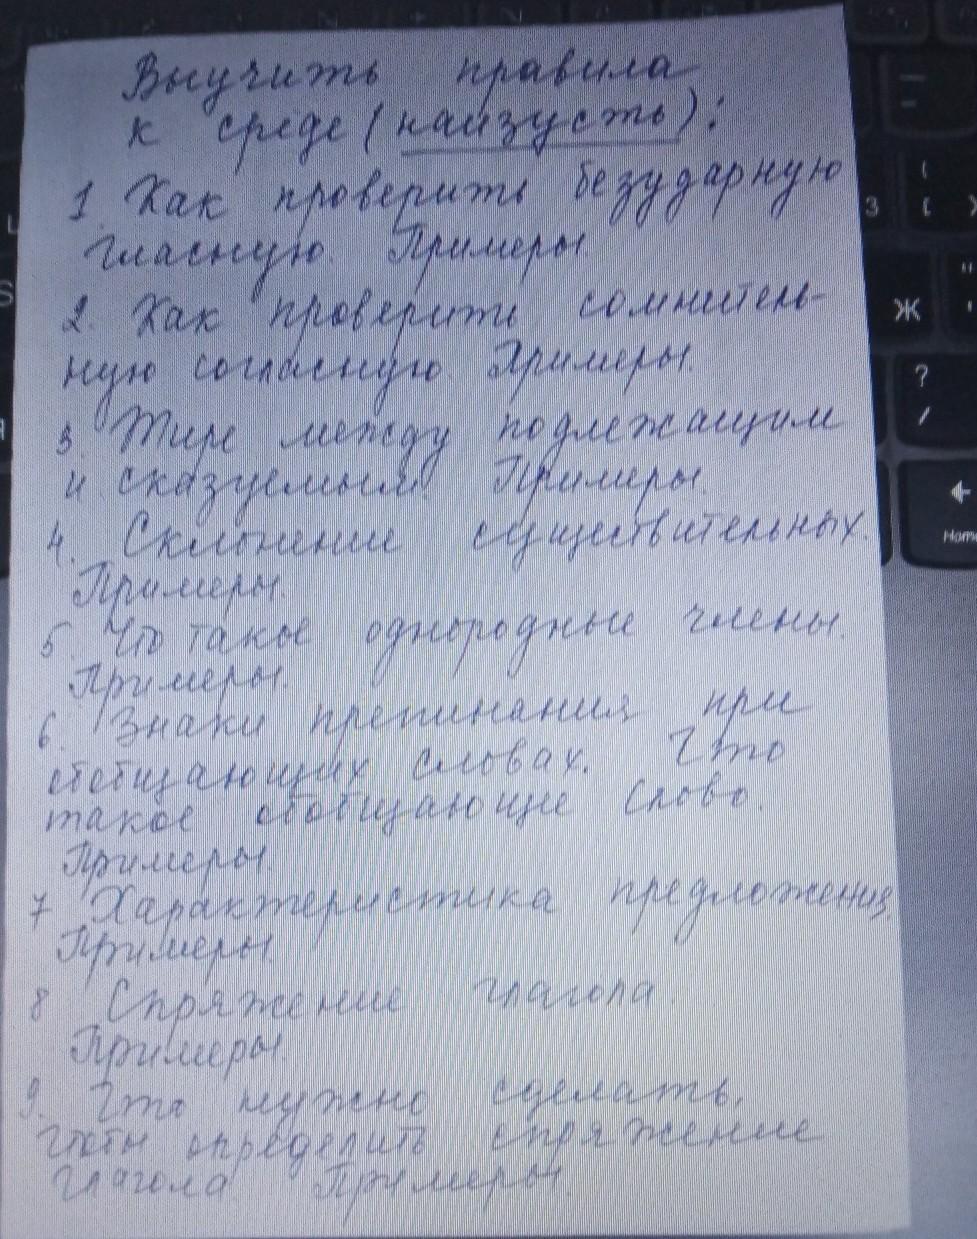 Выучить правила
к среде (наизусть):
1. Как проверить безударную
гласную. Примеры.
2. Как проверить сомнитель-
ную согласную. Примеры.
3 Тире между подлежащим
и сказуемым. Примеры.
4. Склонение существительных.
Примеры.
5. Что такое однородные члены.
Примеры.
6. Знаки препинания при
обобщающих словах. Что
такое обобщающие слово.
Примеры.
7 Характеристика предложения.
Примеры.
8 Спряжение глагола.
Примеры.
9. Что нужно сделать,
чтобы определить спряжение
глагола Примеры.
З
Ж
?
/
Home